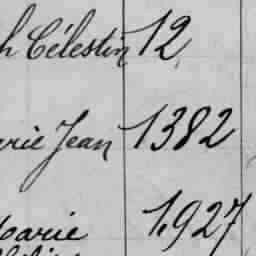 h Célestin 12
rie Jean 1382
Marie 1.927